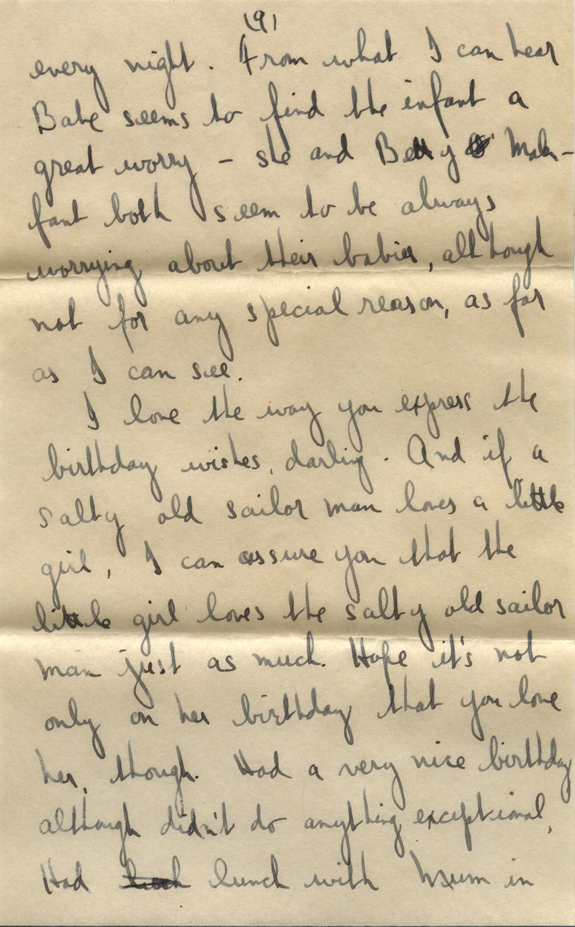 (9)
every night. From what I can hear
Babe seems to find the infant a
great worry – she and Betty Mal-
fant both seem to be always
worrying about their babies, although
not for any special reason, as far
as I can see.
I love the way you express the
birthday wishes, darling. And if a
salty old sailor man loves a little
girl, I can assure you that the
little girl loves the salty old sailor
man just as much. Hope it's not
only on her birthday that you love
her, though. Had a very nice birthday
although didn't do anything exceptional,
Had lunch with Mum in